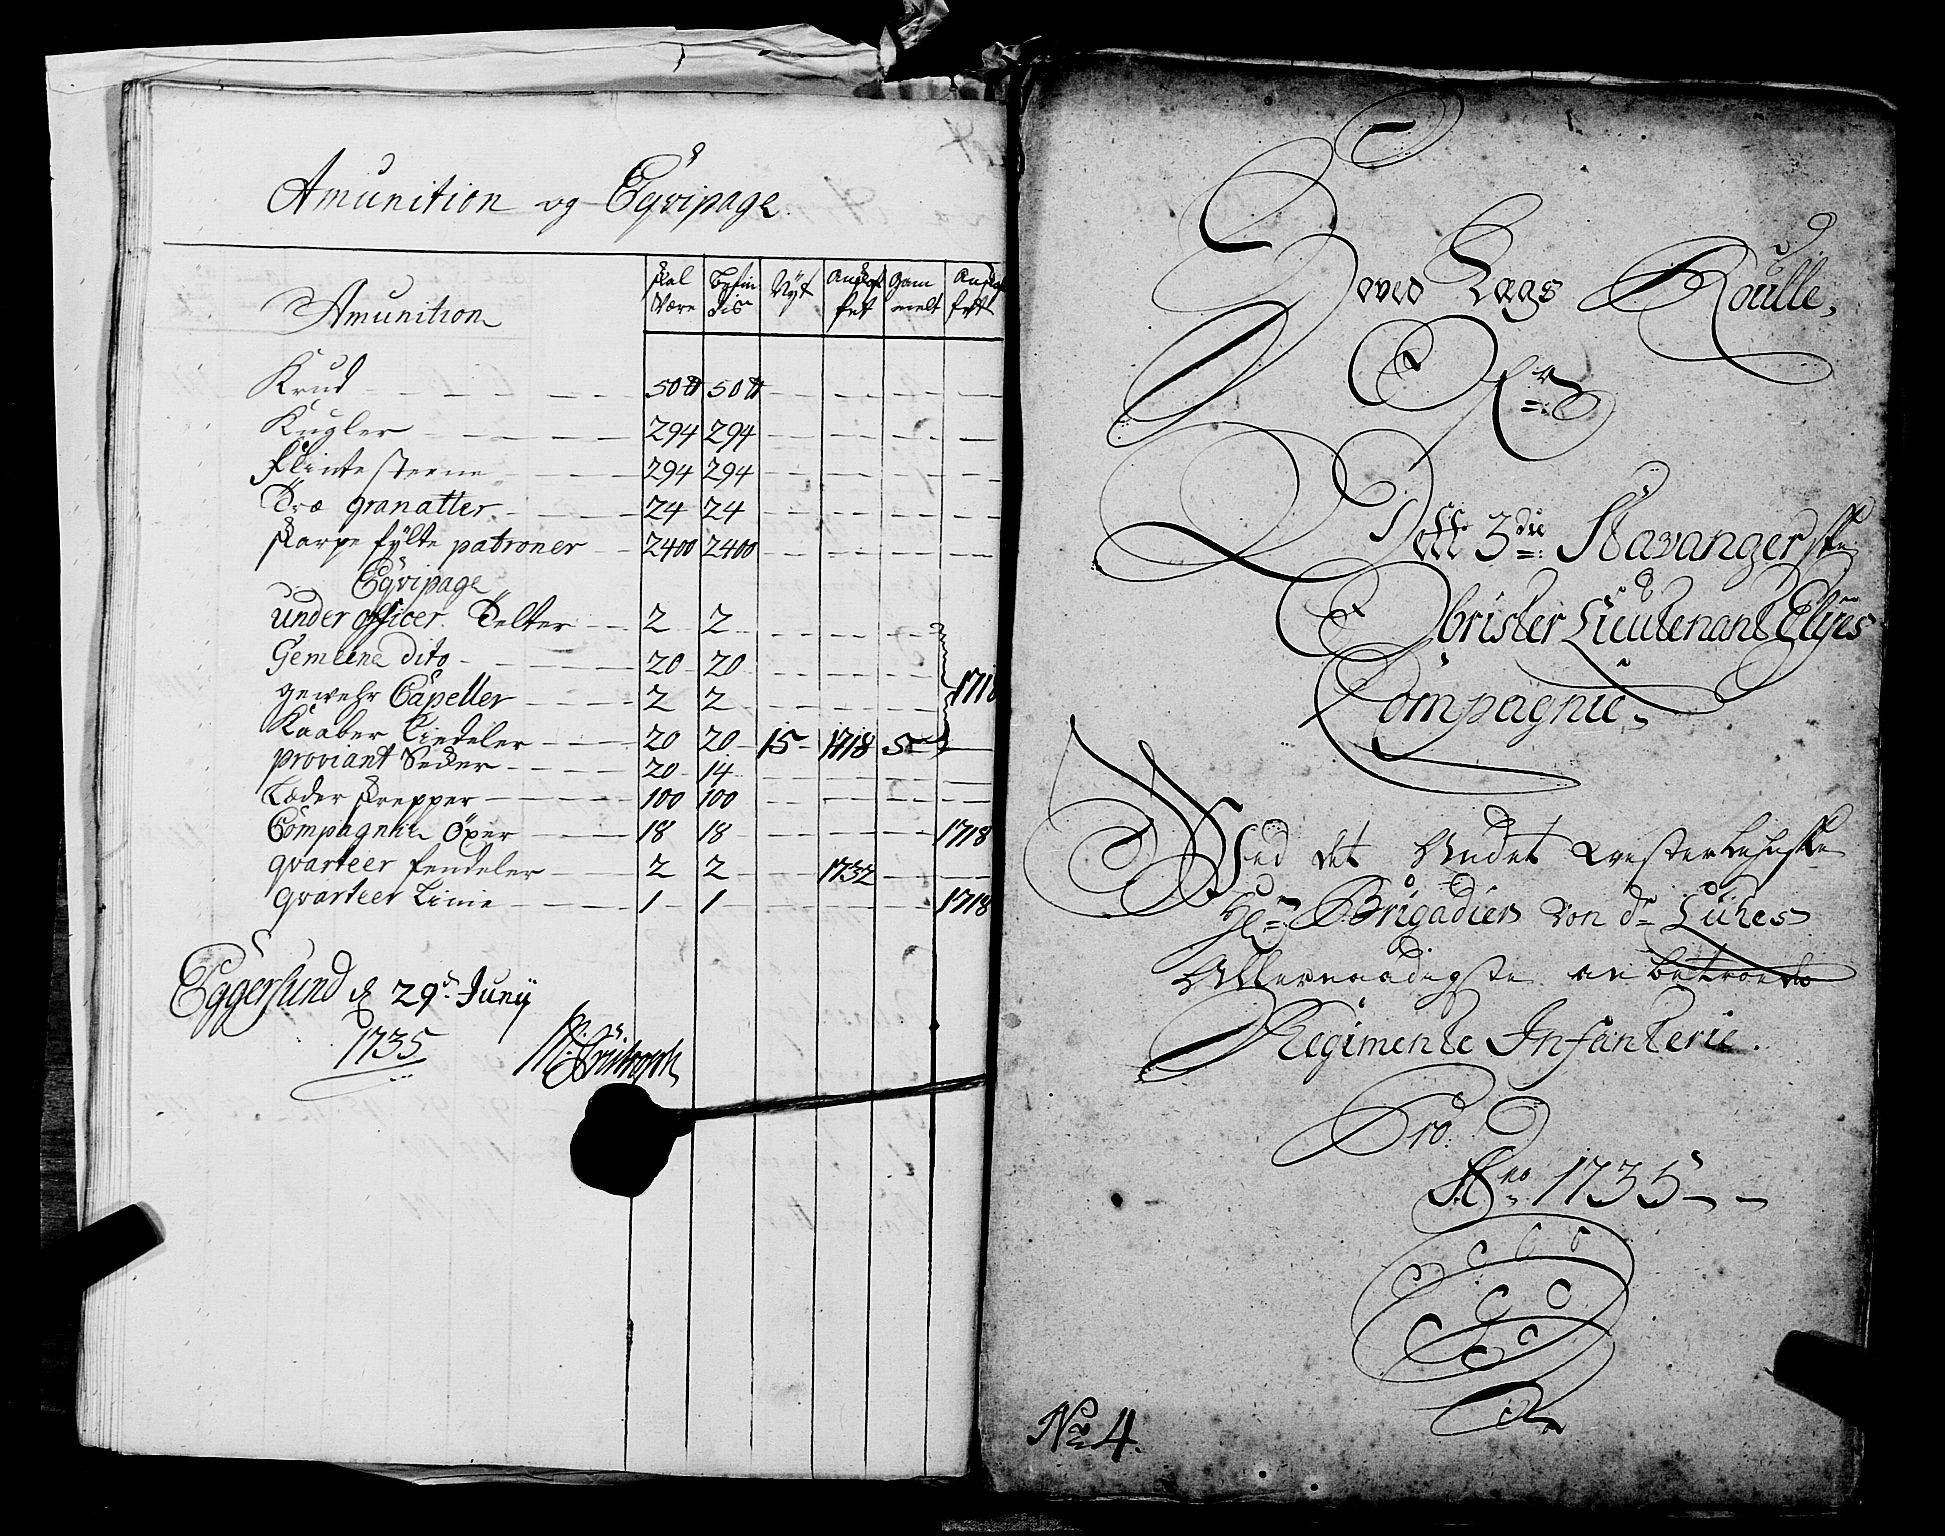 Amunition og Eqvipage.
Amunition | skal Være | befin dis | Nÿt | Anskaf fet | Gam melt | Anskaf fet
Krud - - - 50 ℔ 50 ℔ - - -
Kugler - - - 294 294 - - -
flinte steene - - - 294 294 - - -
Træ granatter - - - 24 24 - - -
skarpe fÿlte patroner - - 2400 2400 - - -
Eqvipage
under officer Telter - - 2 2 - - -
Gemeene dito - - - 20 20 - - -
gewehr Capeller - - - 2 2 - - - 1718
Kaaber Kiedeler - - - 20 20 15 1718 5 -
proviant Secker - - - 20 14 - - -
Læder skrepper - - - 100 100 - - -
Compagnie Öxer - - - 18 18 - - - 1718
qvarteer fendeler - - - 2 2 - - 1732 - -
qvarteer Linie - - - 1 1 - - - 1718
Eggersund d. 29d. Junÿ
1735
Hoved Lags Roulle,
Over
Dett 3die Stavangerske
Obrister Lieutenant
Compagnie
Ved det Andet Westerlehnske
Hr. Brigadier von de Lühes
Allernaadigste anbetroede
Regimente Infanterie.
Pro
Ano 1735 - -
No 4.